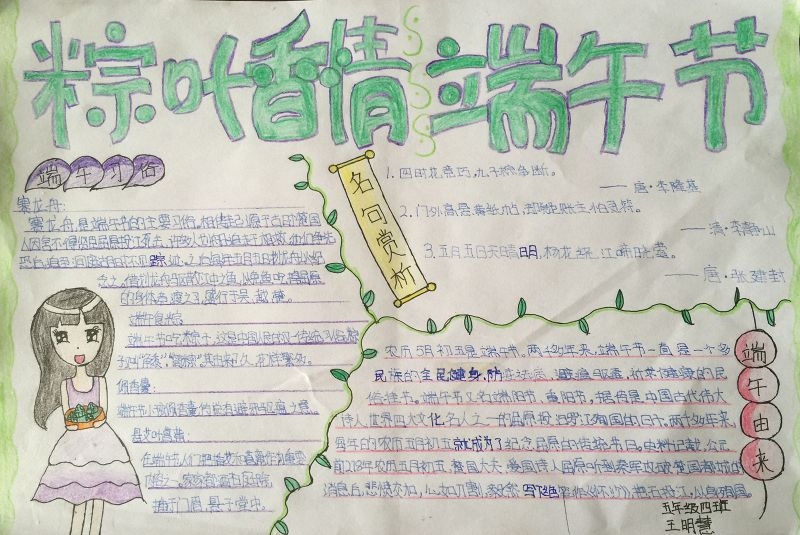 粽叶香情端午节
端午习俗
赛龙舟:
赛龙舟是端午节的主要习俗。相传起源于古时楚国
人因舍不得贤臣屈原投江死去,许多人划船追赶拯救。他们争先
恐后,追至洞庭湖时不见踪迹。之后每年五月五日划龙舟以纪
念之。借划龙舟驱散江中之鱼,以免鱼吃掉屈原
的身体。竞渡之习,盛行于吴、越、楚。
端午食粽:
端午节吃粽子,这是中国人民的又一传统习俗。粽
子又叫“角黍”、“筒粽”。其由来已久,花样繁多。
佩香囊:
端午节小孩佩香囊,传说有避邪驱瘟之意。
悬艾叶菖蒲:
在端午节,人们把插艾和菖蒲作为重要
内容之一。家家都洒扫庭除,
插于门眉,悬于堂中。
名句赏析
1.四时花竞巧,九子粽争断。
——唐·李隆基
2.门外高悬黄纸帖,却疑账主怕灵符。
——清·李静山
3.五月五日天晴明,杨花绕江啼晓莺。
——唐·张建封
端午由来
农历5月初五是端午节。两千多年来,端午节一直是一个多
民族的全民健身,防疫祛病,避瘟驱毒,祈求健康的民
俗佳节。端午节又名端阳节、重阳节。据传是中国古代伟大
诗人、世界四大文化名人之一的屈原投汨罗江殉国的日子。两千多年来,
每年的农历五月初五就成为了纪念屈原的传统节日。史料记载,公元
前278年农历五月初五,楚国大夫、爱国诗人屈原听到秦军攻破楚国都城的
消息后,悲愤交加,心如刀割,毅然写下绝笔作《怀沙》,抱石投江,以身殉国。
五年级四班
王明慧